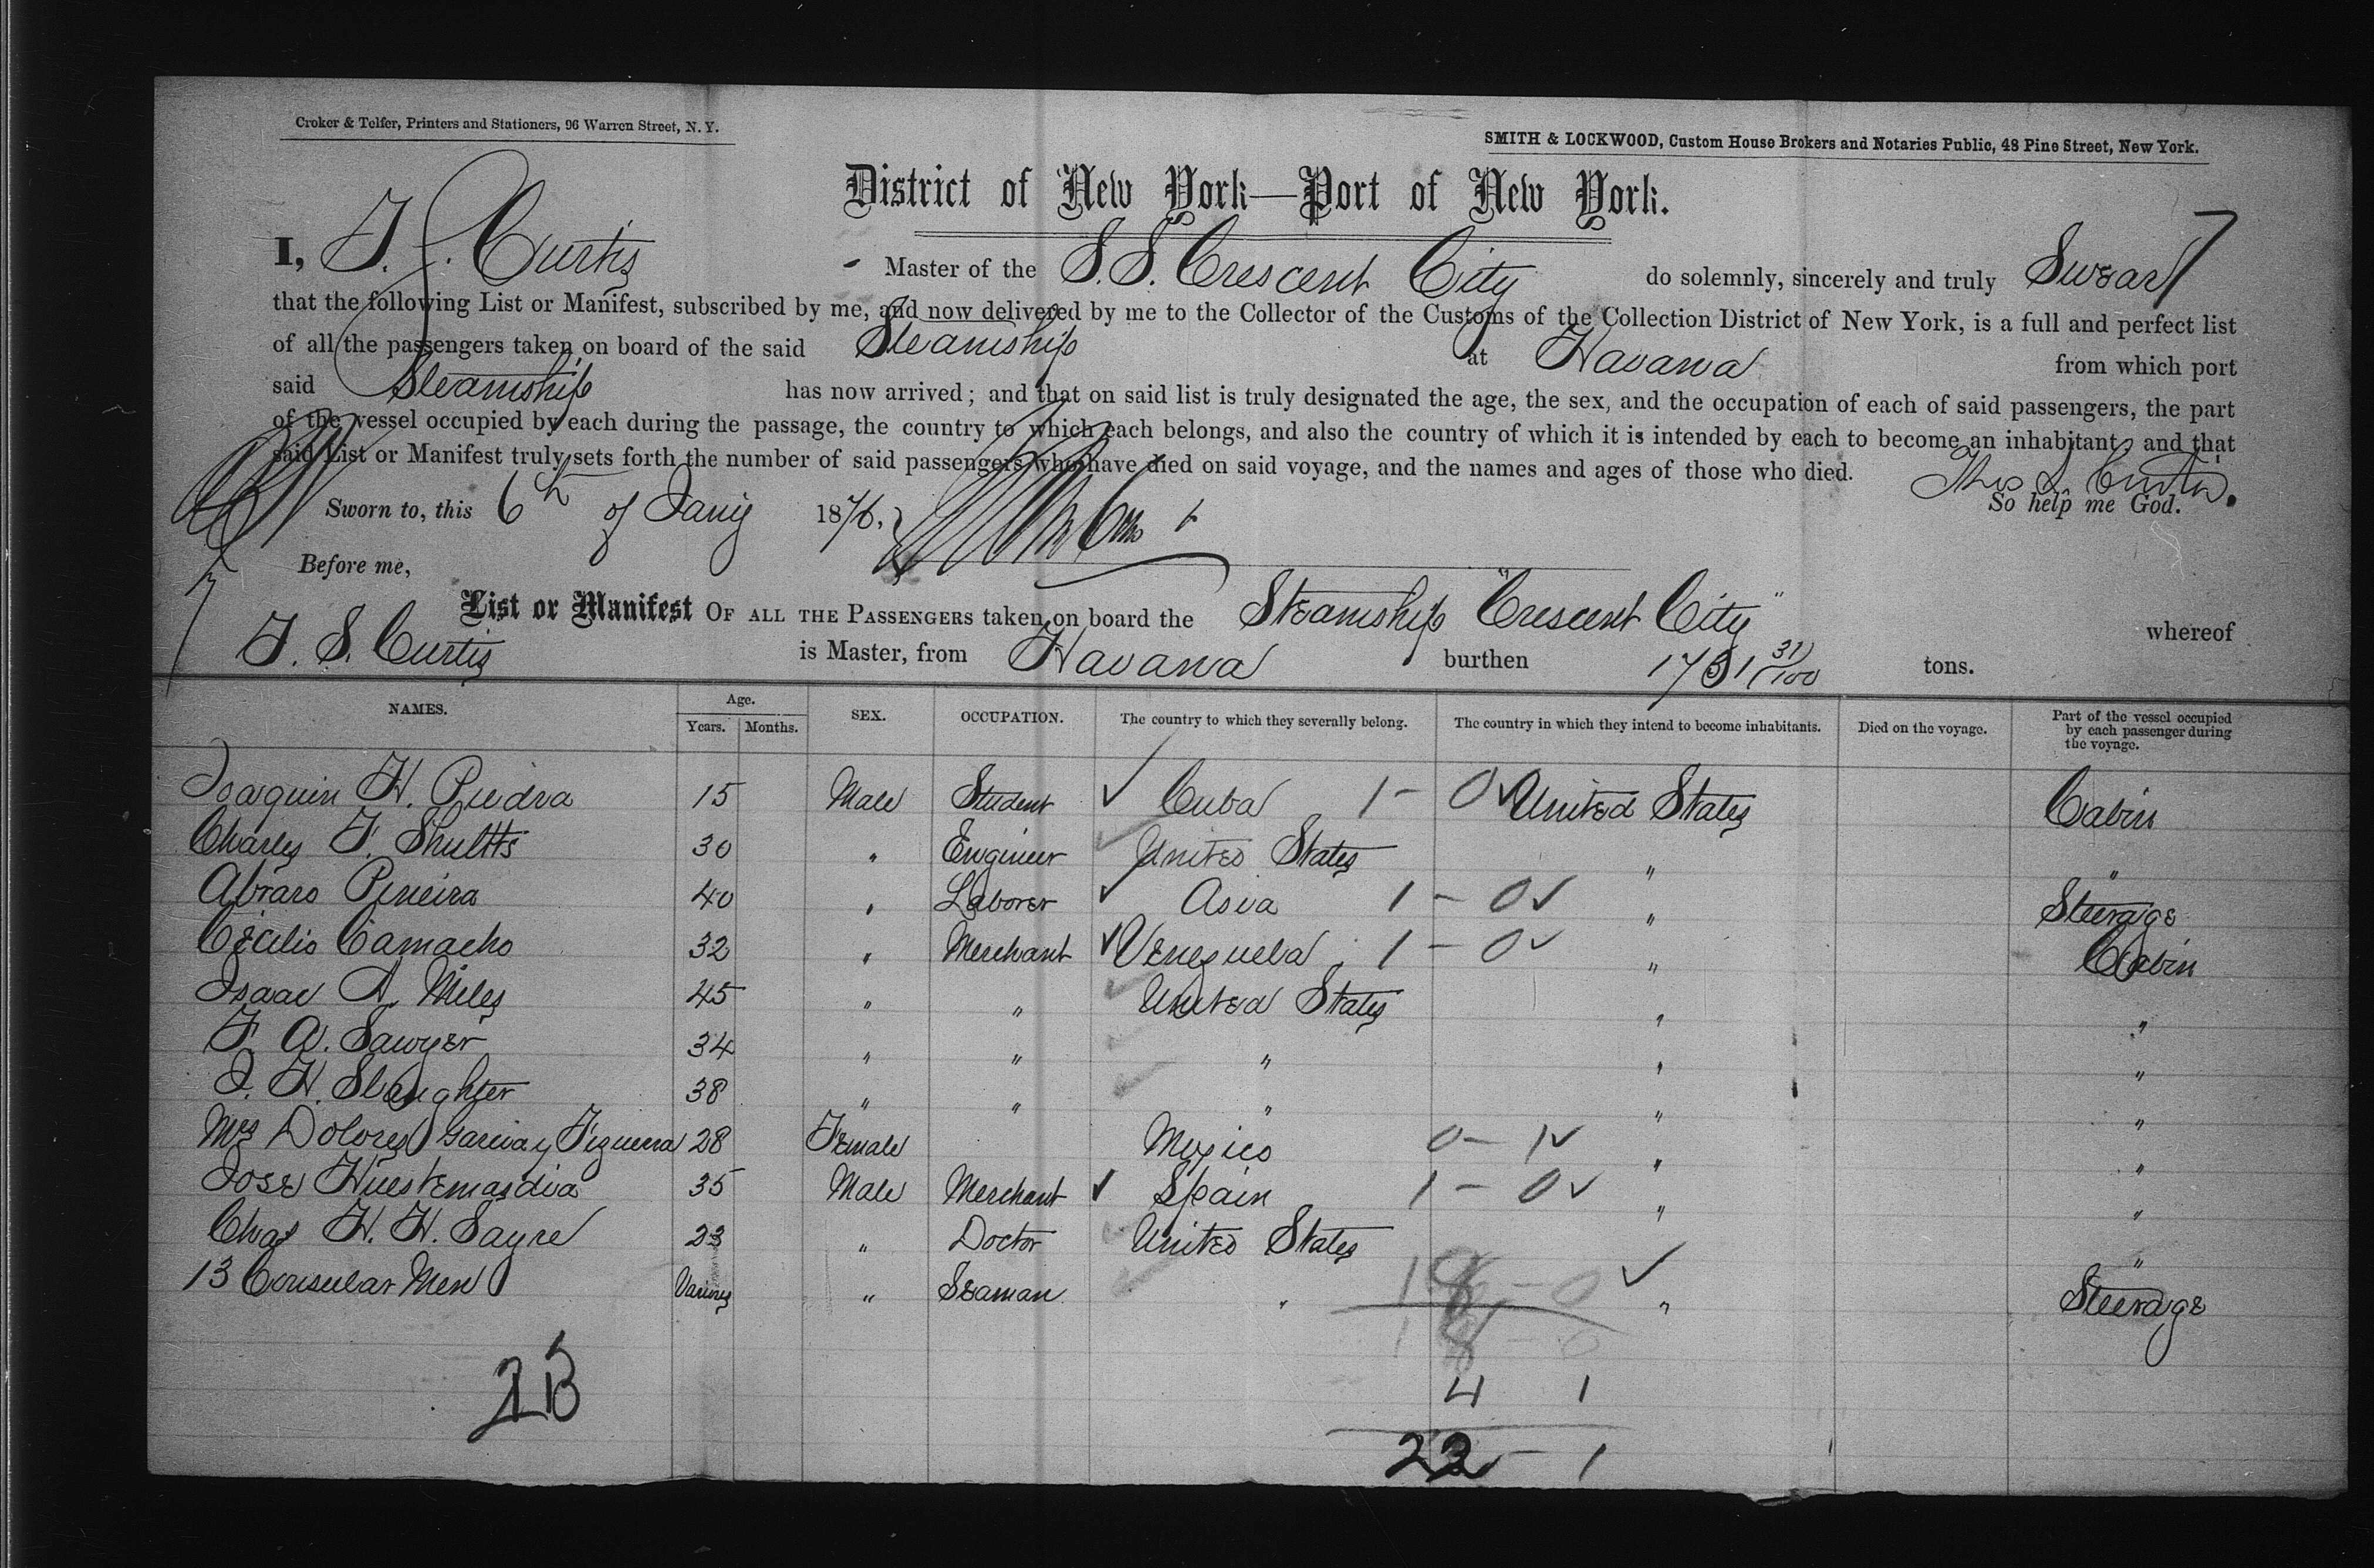 Croker & Telfer, Printers and Stationers, 96 Warren Street, N. Y.
SMITH & LOCKWOOD, Custom House Brokers and Notaries Public, 48 Pine Street, New York.
District of New York—Port of New York.
I, T. S. Curtis Master of the S.S. Crescent City do solemnly, sincerely and truly Swear
that the following List or Manifest, subscribed by me, and now delivered by me to the Collector of the Customs of the Collection District of New York, is a full and perfect list
of all the passengers taken on board of the said Steamship at Havana from which port
said Steamship has now arrived; and that on said list is truly designated the age, the sex, and the occupation of each of said passengers, the part
of the vessel occupied by each during the passage, the country to which each belongs, and also the country of which it is intended by each to become an inhabitant; and that
said List or Manifest truly sets forth the number of said passengers who have died on said voyage, and the names and ages of those who died.
Thos S. Curtis.
So help me God.
Sworn to, this 6th of Jany 1876,
Before me,
List or Manifest OF ALL THE PASSENGERS taken on board the Steamship "Crescent City" whereof
T. S. Curtis is Master, from Havana burthen tons.
NAMES. Age. Years. Months. SEX. OCCUPATION. The country to which they severally belong. The country in which they intend to become inhabitants. Died on the voyage. Part of the vessel occupied by each passenger during the voyage.
Joaquin H. Piedra 15 Male Student Cuba 1 - 0 United States Cabin
Charles F. Shultts 30 " Engineer United States " "
Abraro Pineira 40 " Laborer Asia 1 - 0 " Steerage
Cecilio Camacho 32 " Merchant Venezuela 1 - 0 " Cabin
Isaac A. Miles 45 " " United States " "
F. A. Sawyer 34 " " " " "
J. H. Slaughter 38 " " " " "
Mrs Dolores Garcia y Figuera 28 Female Mexico 0 - 1 " "
Jose 35 Male Merchant Spain 1 - 0 " "
Chas H. H. Sayre 23 " Doctor United States "
13 Consular Men Various " Seaman " " Steerage
4 1
23
22 - 1